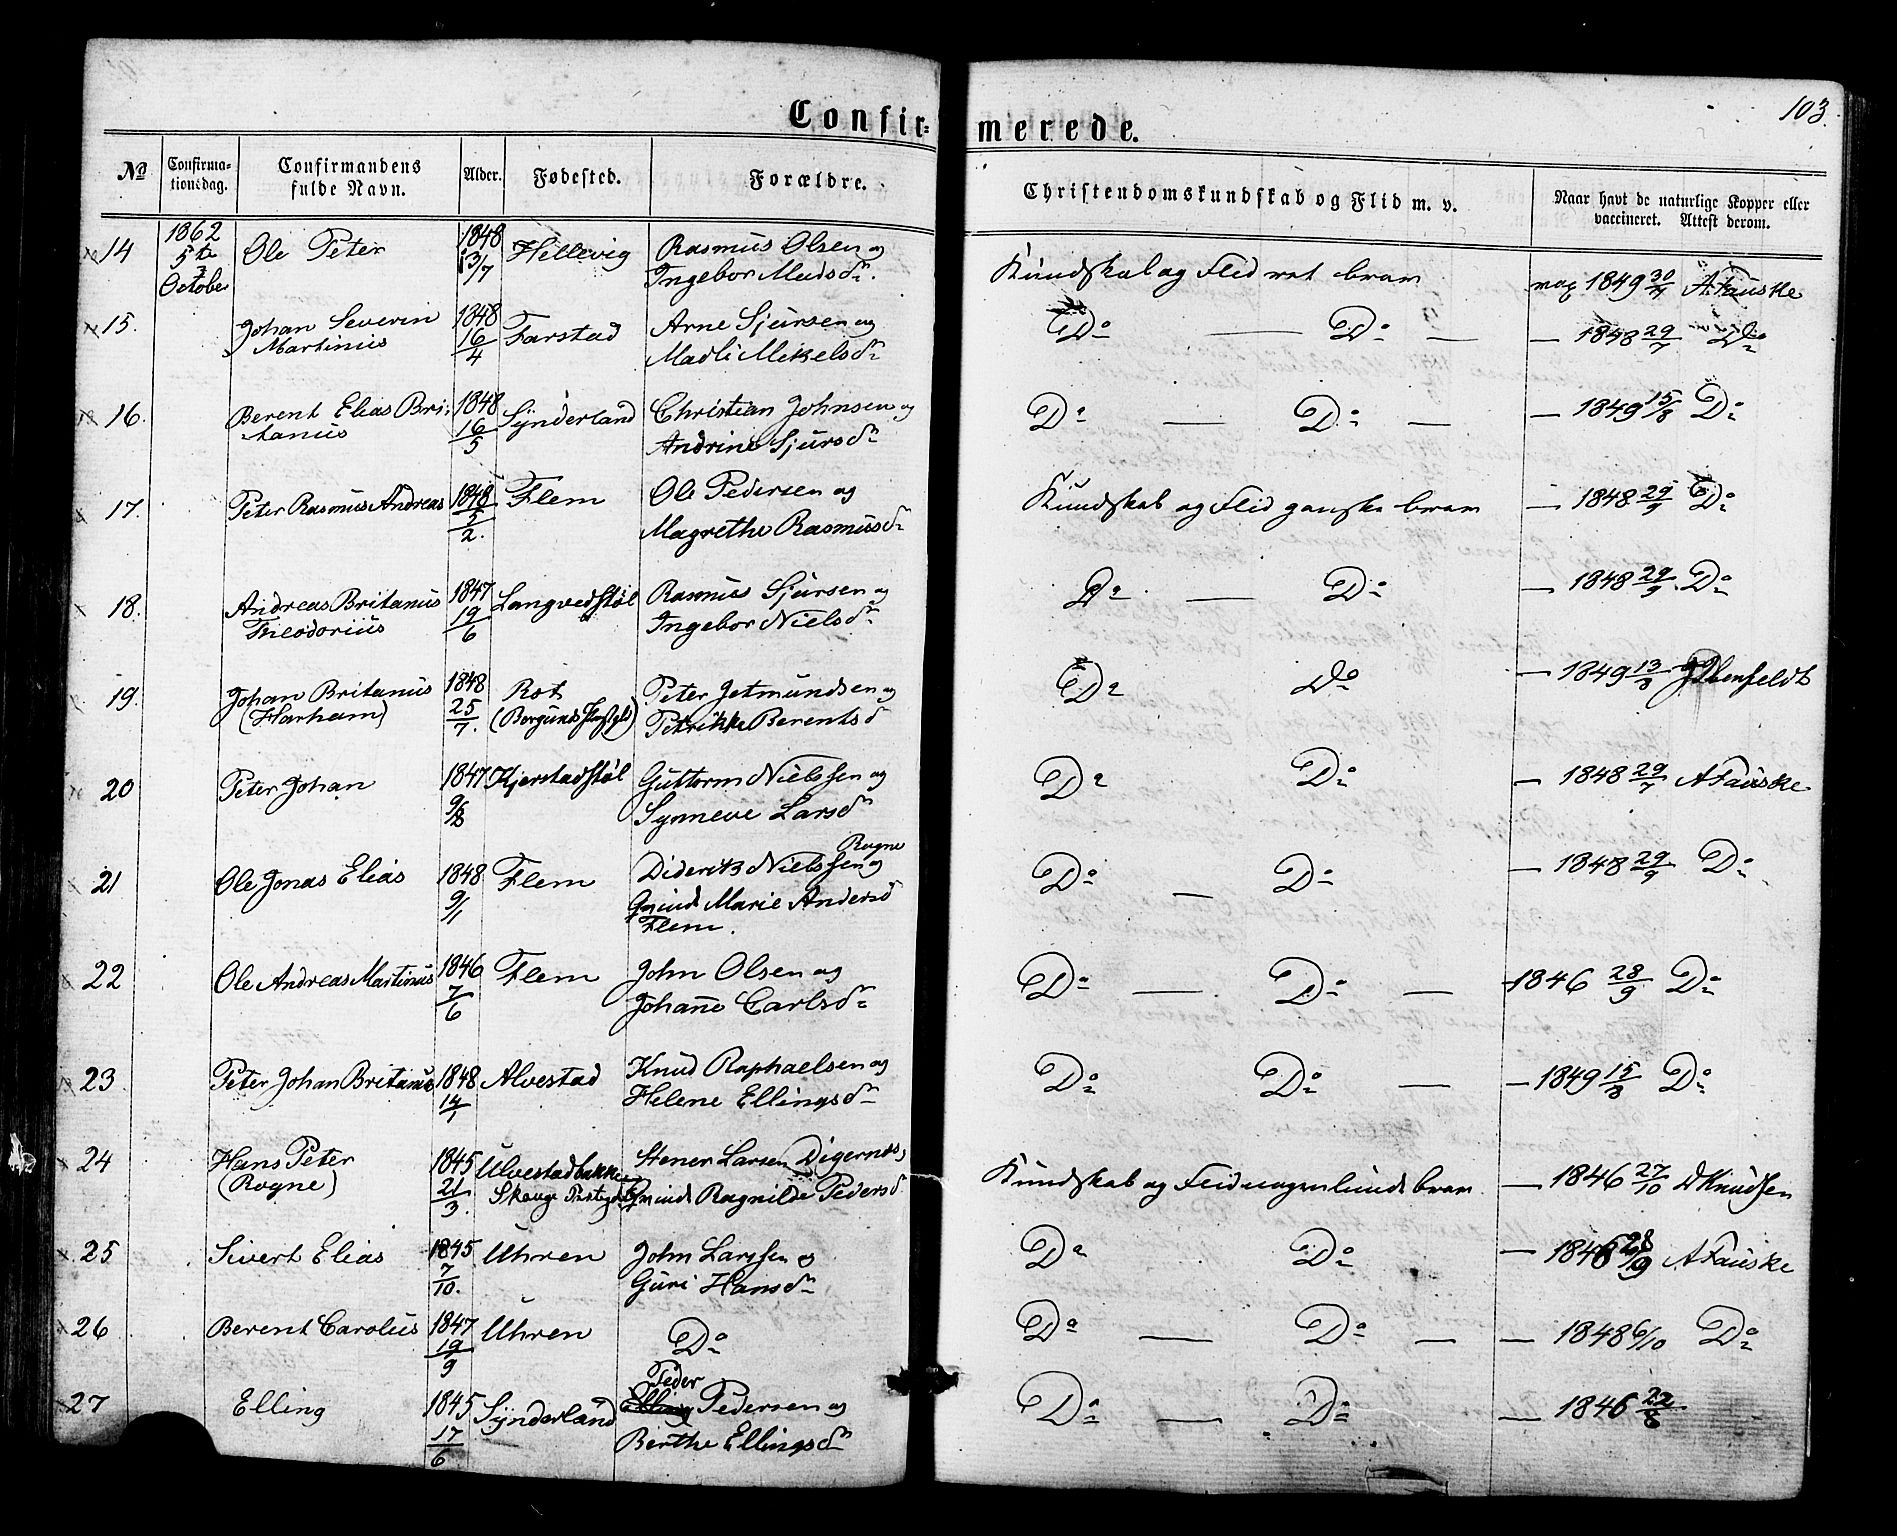 103.
Confir= merede.
No Confirma-tionsdag. Confirmandens fulde Navn. Alder. Fødested. Forældre. Christendomskundskab og Flid m. v. Naar havt de naturlige Kopper eller vaccineret. Attest derom.
14 1862 5te October Ole Peter 1848 13/7 Hellevig Rasmus Olsen og Ingebor Madsdr. Kundskab og Flid ret brav vax 1849 30/7 A Fauske
15. Johan Severin Martinus 1848 16/4 Farstad Arne Sjursen og Madli Mikelsdr Do — Do — — 1848 29/7 Do
16. Berent Elias Britanus 1848 16/5 Synderland Christian Johnsen og Andrine Sjursdr Do — Do — — 1849 15/8 Do
17. Peter Rasmus Andreas 1848 5/2. Flem Ole Pedersen og Magrethe Rasmusdr Kundskab og Flid ganske brav — 1848 29/9 Do
18. Andreas Britanus Theodorius 1847 19/6 Langvedstøl Rasmus Sjursen og Ingebor Nielsdr Do — Do — 1848 29/9 Do
19. Johan Britanus (Harham) 1848 25/7. Rot (Borgunds Prstgld) Peter Jetmundsen og Petrikke Berentsd Do Do — 1849 13/8
20 Peter Johan 1847 9/8 Kjerstadstøl Guttorm Nielssen og Synneve Larsdr Do Do — 1848 29/7 A Fauske
21 Ole Jonas Elias 1848 9/1 Flem Diderik Nielssen Rogne og Gmind Marie Andersd Flem. Do — Do — 1848 29/9 Do
22 Ole Andreas Martinus 1846 7/6 Flem John Olsen og Johanne Carlsdr Do — Do — 1846 28/9 Do
23 Peter Johan Britanus 1848 14/1 Alvestad Knud Raphaelsen og Helene Ellingsdr Do Do — — 1849 15/8 Do
24 Hans Peter (Rogne) 1845 21/3. Ulvestadbakken Skouge Prstgjld Stener Larsen Digernæs, Gmind Ragnilde Pedersd Kundskab og Flid nogenlunde brav — 1846 27/10 D Knudsen
25 Sivert Elias 1845 7/10. Uhren John Larssen og Guri Hansdr Do Do — 1846 28/9 A Fauske
26 Berent Carolius 1847 19/9 Uhren Do Do — Do — — 1848 6/10 Do
27 Elling 1845 17/6 Synderland Peder Pedersen og Berthe Ellingsdr Do — Do — 1846 22/8